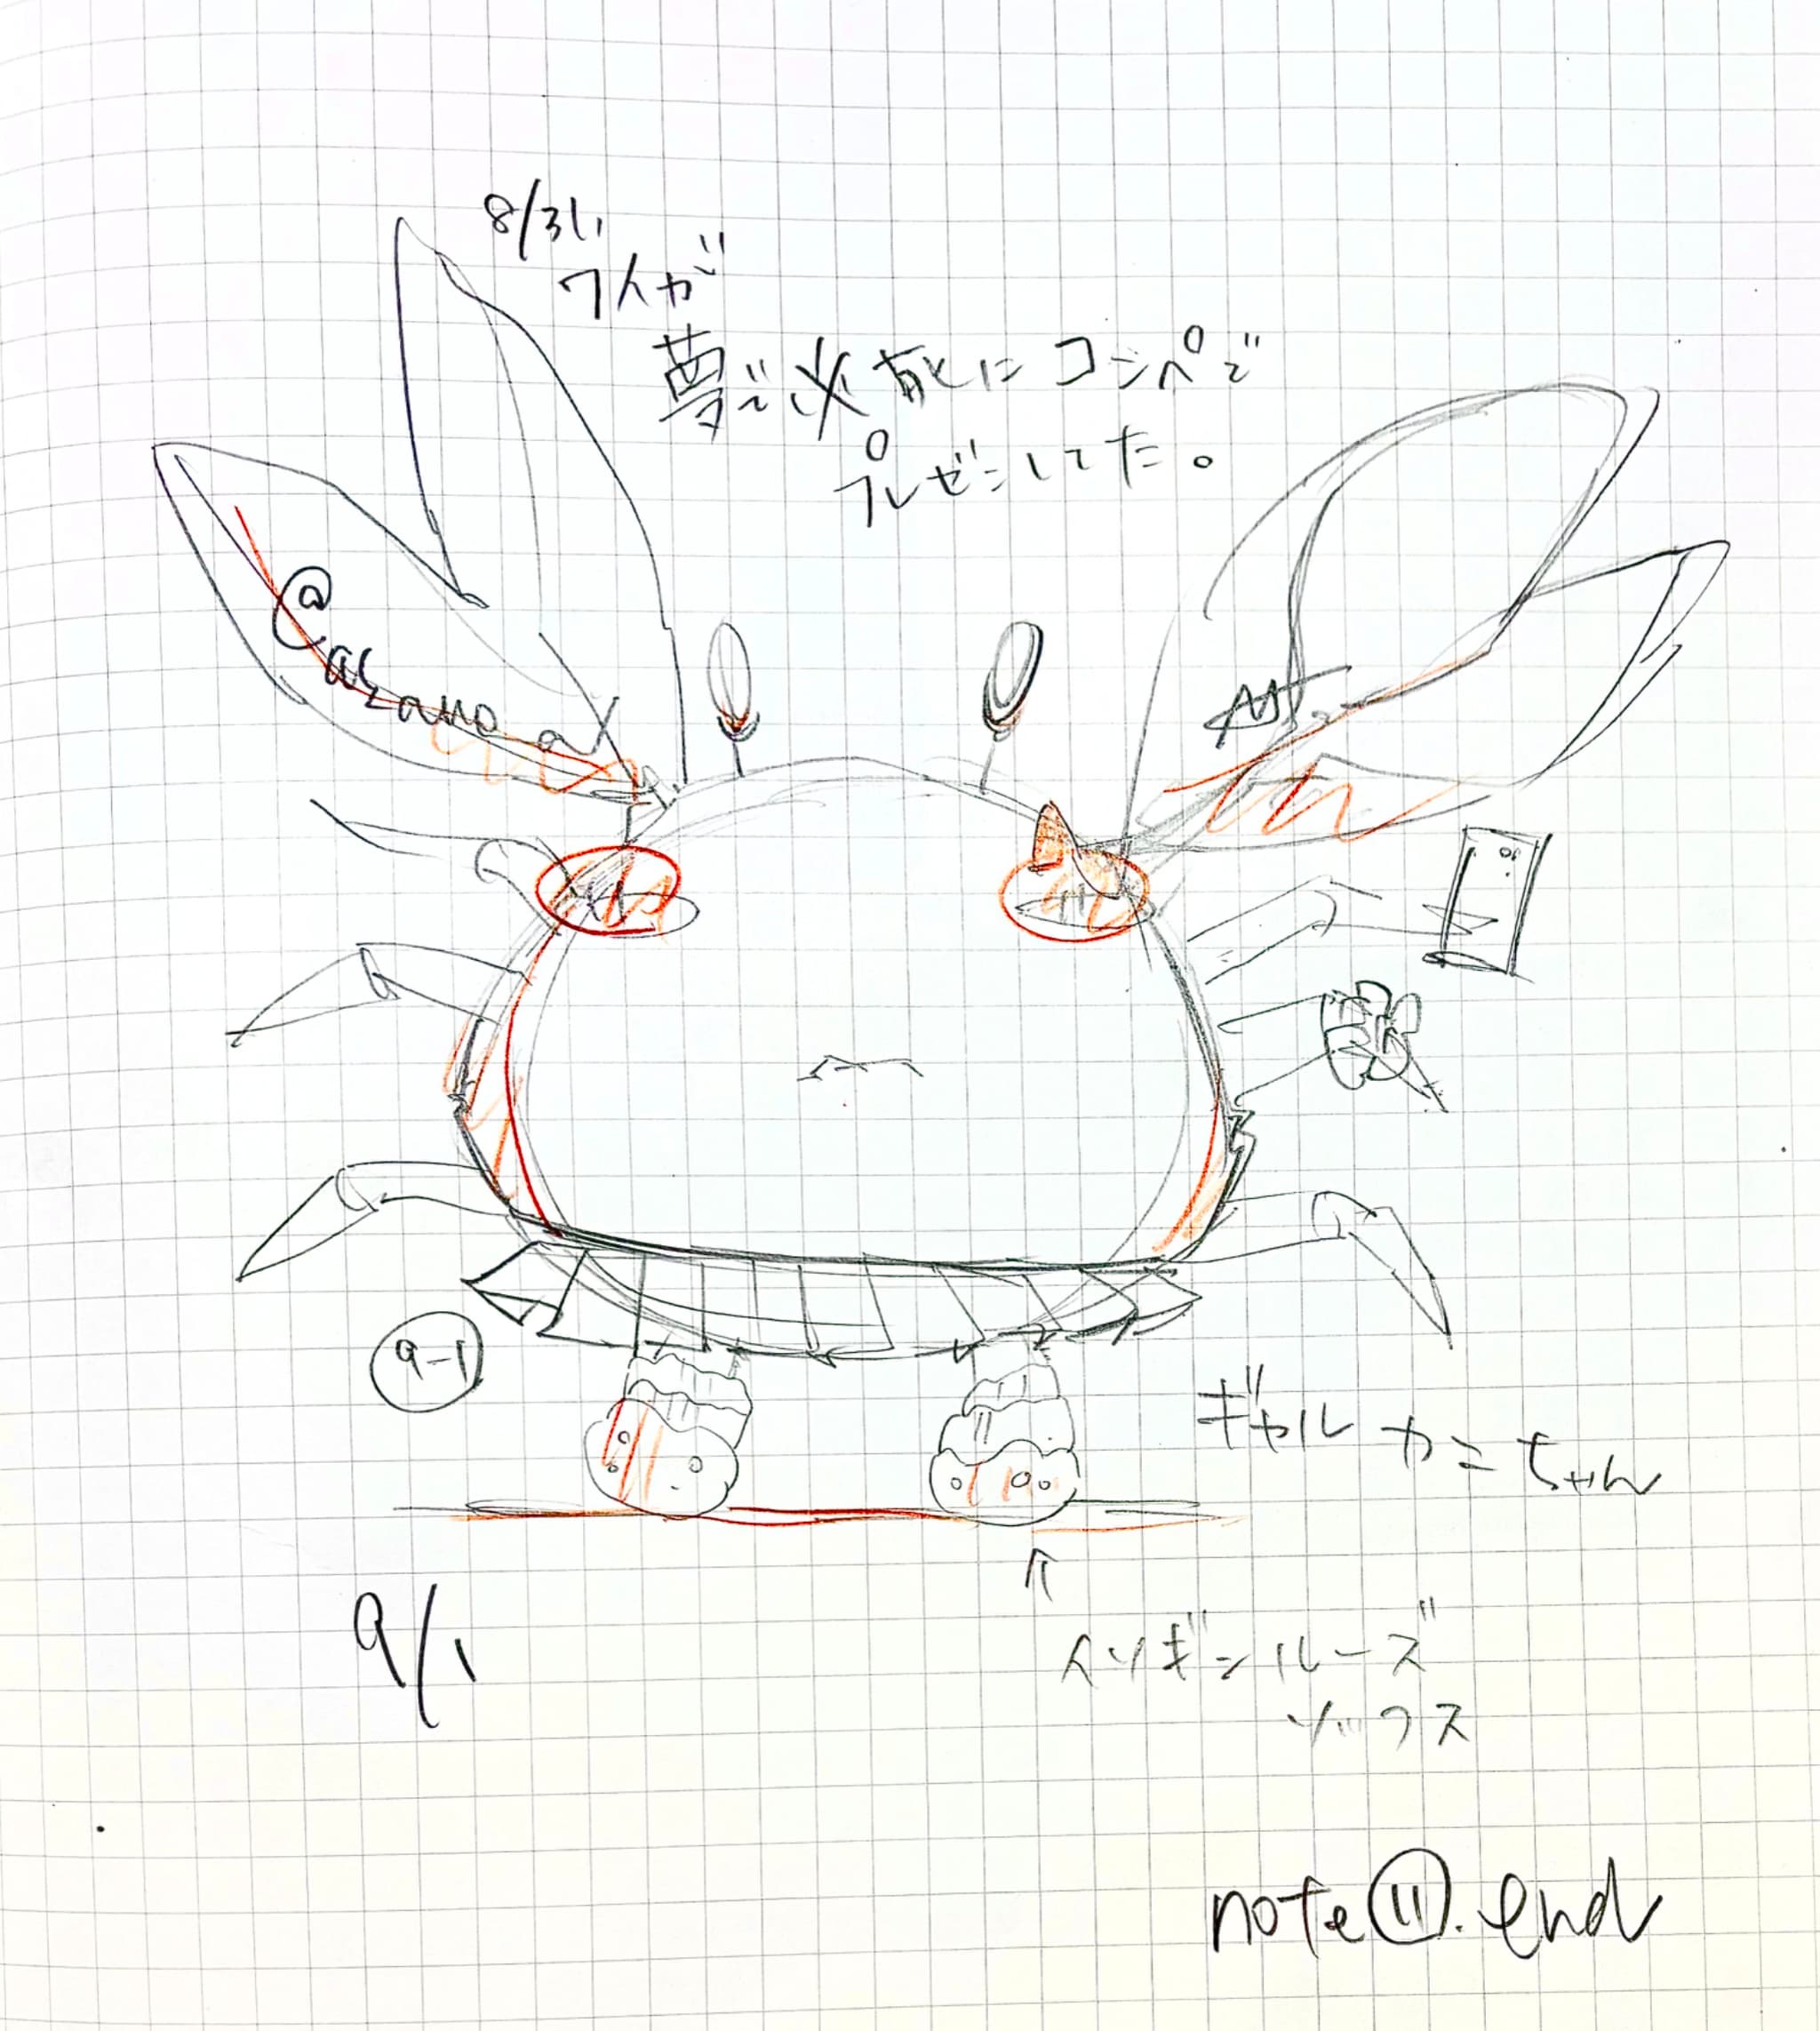 8/31,
ワイが
夢で必死にコンペで
プレゼンしてた。
9-1
ギャルカニちゃん
9/1
↑
イソギンルーズ
ソックス
note⑪.end